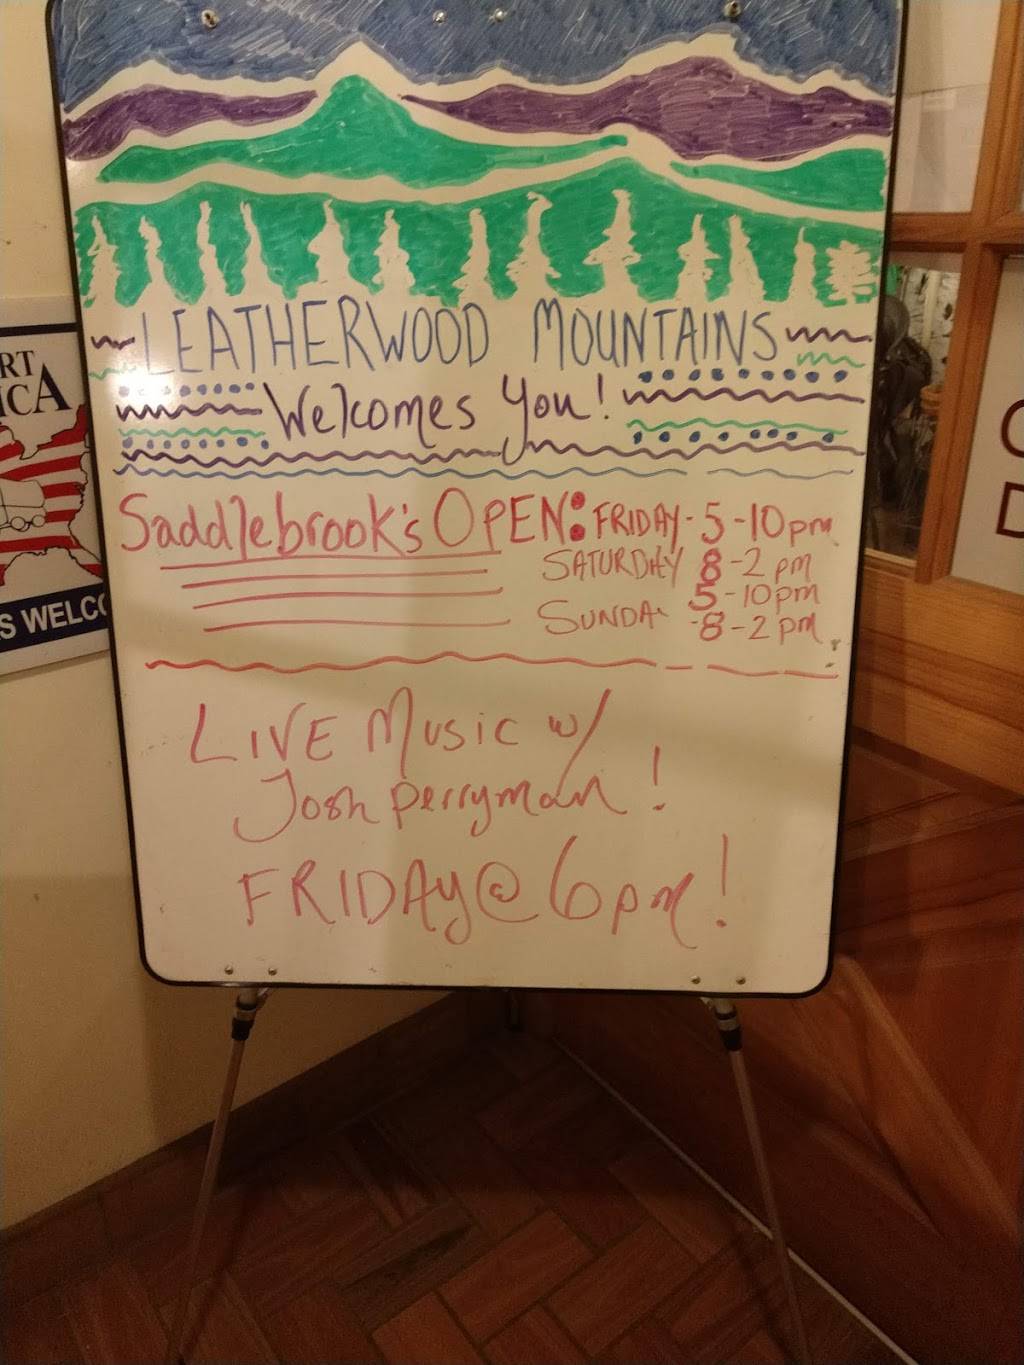 LEATHERWOOD MOUNTAINS
Welcomes You!
Saddlebrook's OPEN: FRIDAY - 5-10pm
SATURDAY 8-2pm
5-10pm
SUNDA -8-2pm
LIVE Music w/
Josh perryman!
FRIDAY @ 6pm!
RT
ICA
S WELCO